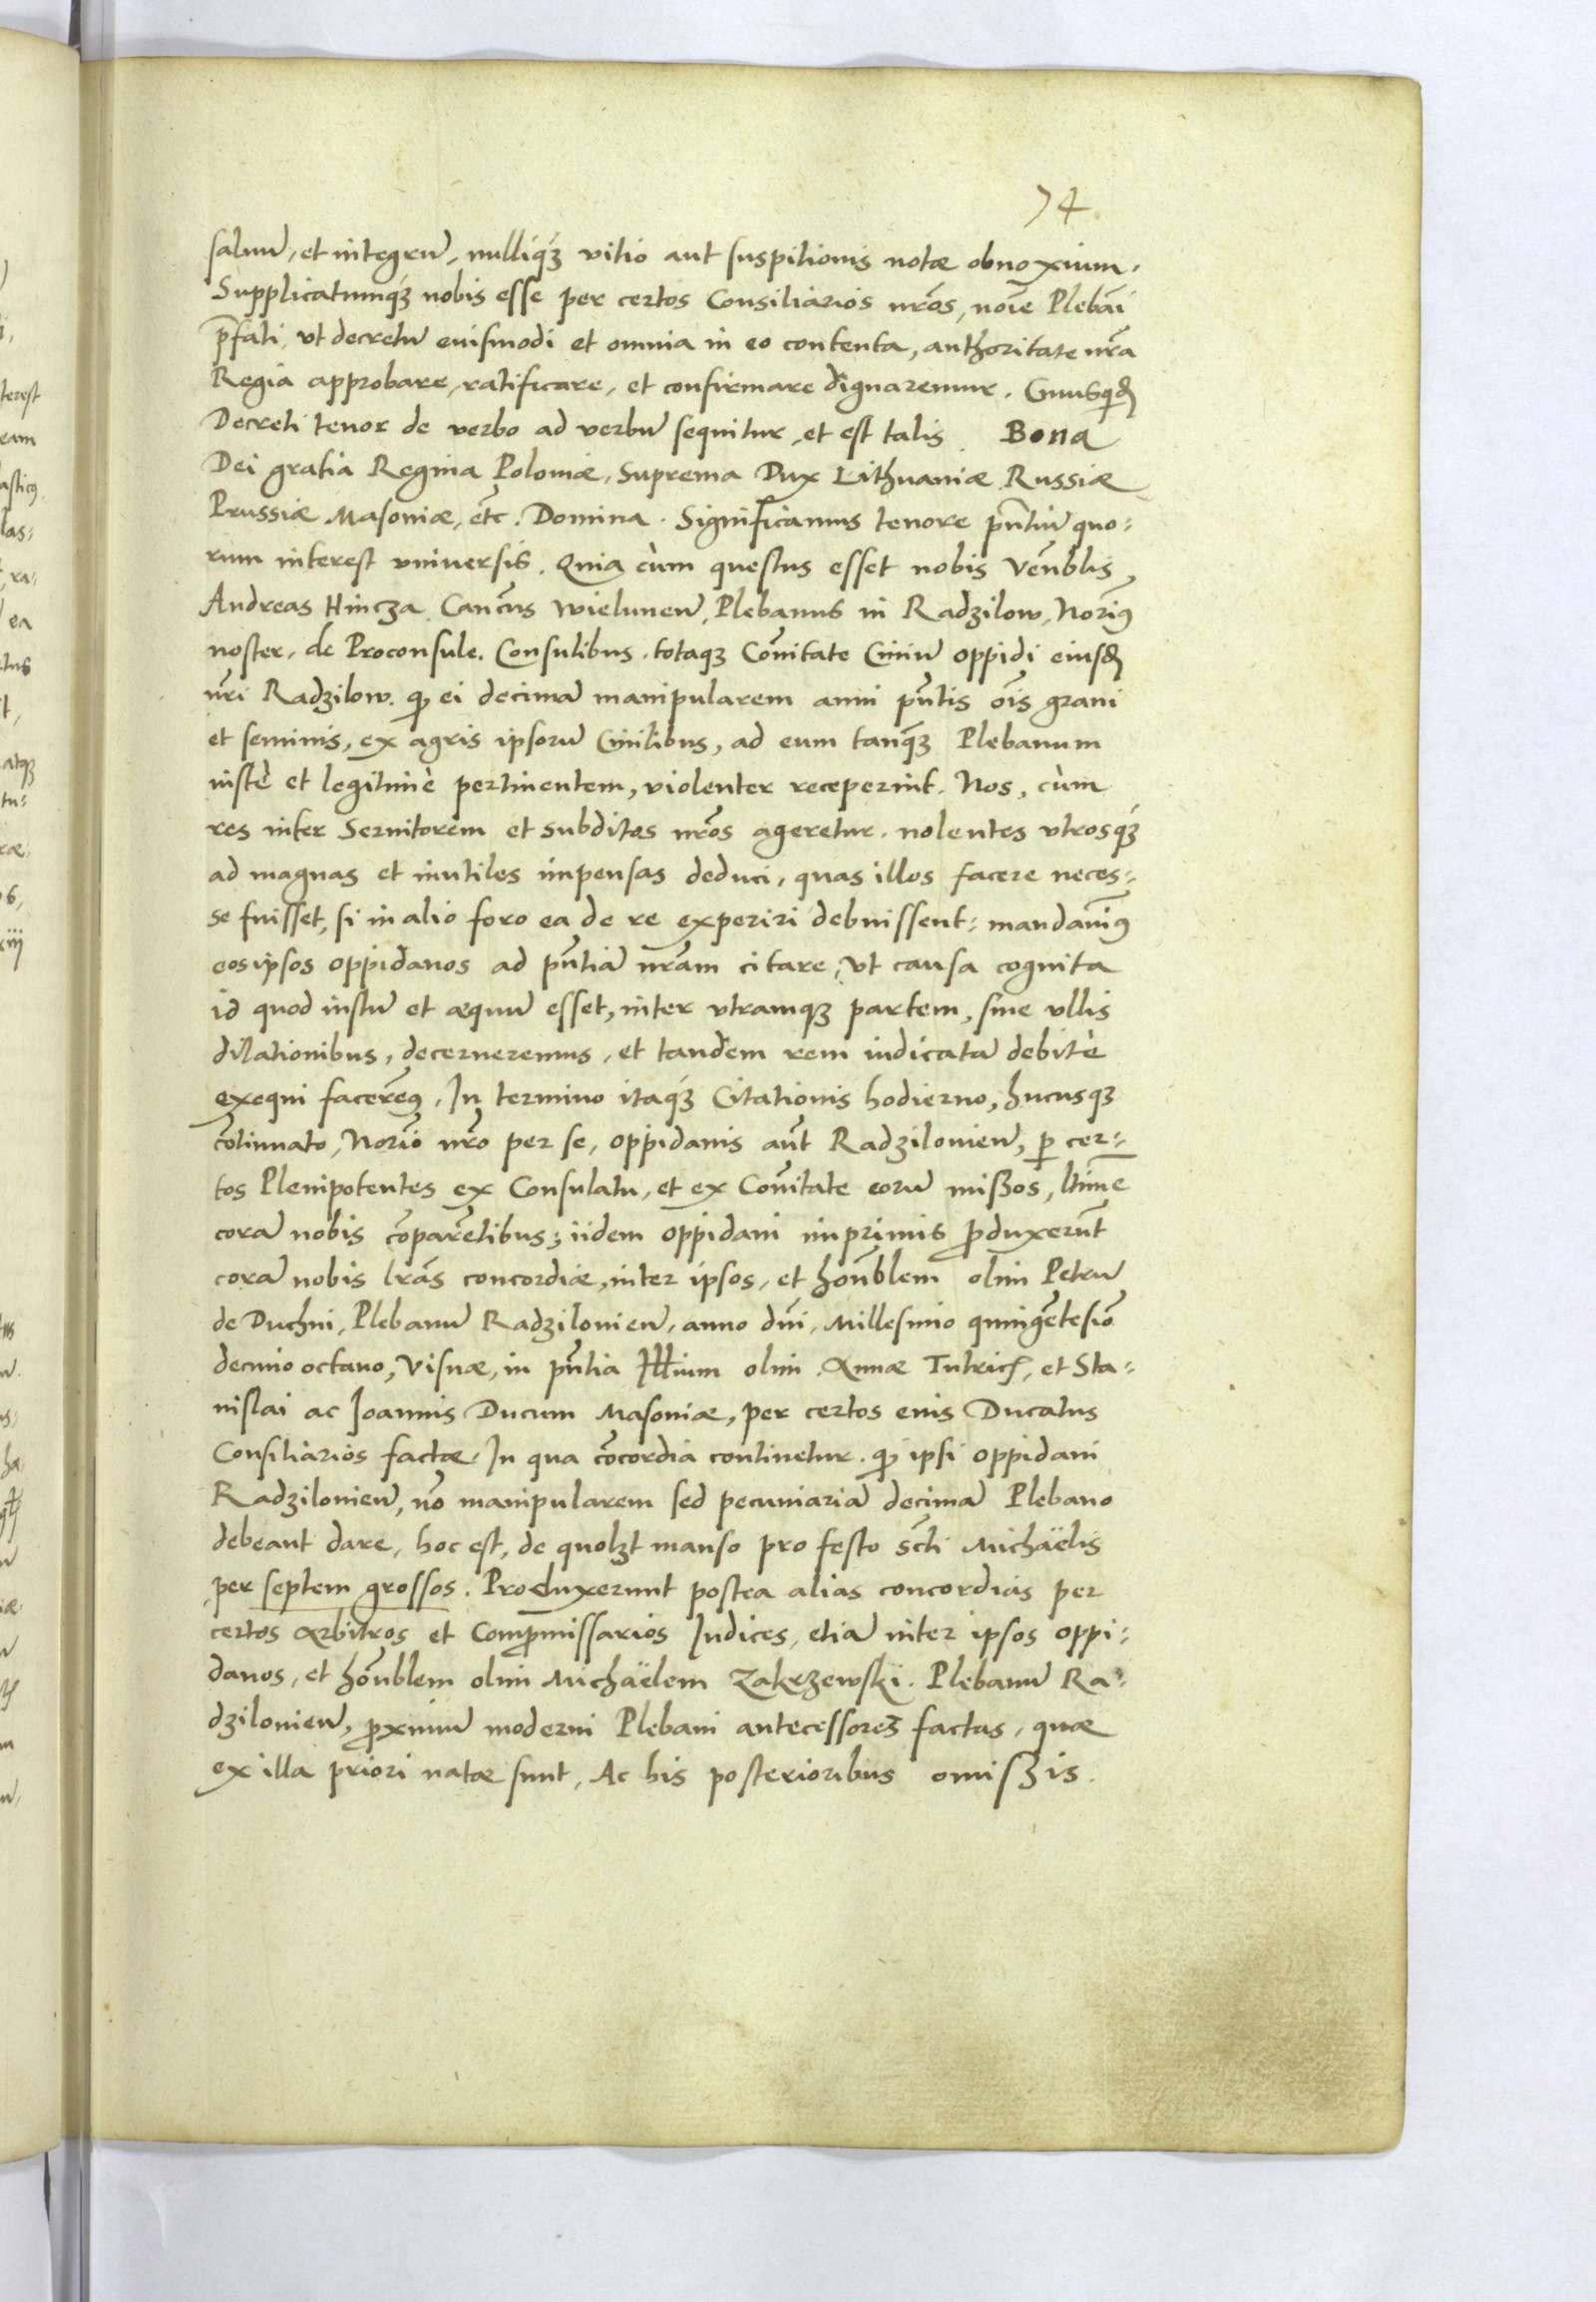 74
saluu̅, et integru̅, nulliq́ꝫ vitio aut suspitionis notæ obnoxium.
Supplicatumq́ꝫ nobis esse per certos Consiliarios nr̃os, noi̅e Pleba̅i
p̅fati, vt decretu̅ euismodi et omnia in eo contenta, authoritate nr̃a
Regia approbare, ratificare, et confirmare dignaremur. Cuius quid̅
Decreti tenor de verbo ad verbu̅ sequitur, et est talis. Bona
Dei gratia Regina Poloniæ, Suprema Dux Lithuaniæ Russiæ
Prussiæ Masoniæ, etc̃. Domina. Significamus tenore pn̅tiu̅ quo:
rum interest vniuersis. Quia cùm questus esset nobis Ven̅blis,
Andreas Hincza Can̅cus Wielunen̅, Plebanus in Radzilow, Nori̅ꝰ
noster, de Proconsule. Consulibus. totaqꝫ Co̅nitate Ciuiu̅ oppidi eiusd̅
nr̃i Radzilow. ꝙ ei decima̅ manipularem anni pn̅tis o̅is grani
et seminis, ex agris ipsoru̅ Ciuilibus, ad eum tanq̃ꝫ Plebanum
iustè et legitimè pertinentem, violenter receperint. Nos, cùm
res inter Seruitorem et subditos nr̃os ageretur. nolentes vtrosq́ꝫ
ad magnas et inutiles impensas deduci, quas illos facere neces:
se fuisset, si in alio foro ea de re experiri debuissent: mandaui̅ꝰ
eos ipsos oppidanos ad pn̅tia̅ nr̃am citare, vt causa cognita
id quod iustu̅ et æquu̅ esset, inter vtramqꝫ partem, sine vllis
dilationibus, decerneremus, et tandem rem iudicata̅ debitè
exequi facere̅ꝰ. In termino itaq́ꝫ Citationis hodierno, hucusqꝫ
co̅tinuato, Nori̅o nr̃o per se, oppidanis au̅t Radzilouien̅, ꝑ cer:
tos Plenipotentes ex Consulatu, et ex Co̅nitate eoru̅ mißos, lt̅ime
cora̅ nobis co̅pare̅tibus; ijdem oppidani imprimis ꝓduxeru̅t
cora̅ nobis lr̃as concordiæ, inter ipsos, et hon̅blem olim Petru̅
de Duchni, Plebanu̅ Radzilouien̅, anno dn̅i, Millesimo quinge̅tesi̅o
decimo octauo, Visnæ, in pn̅tia Illium olim Annæ Tutric̅, et Sta:
nislai ac Ioannis Ducum Masoniæ, per certos euis Ducatus
Consiliarios factæ. In qua co̅cordia continetur. ꝙ ipsi oppidani
Radzilouien̅, no̅ manipularem sed pecuniaria̅ decima̅ Plebano
debeant dare, hoc est, de quolꝫt manso pro festo sc̅ti Michaëlis
per septem grossos. Produxerunt postea alias concordias per
certos Arbitros et Comꝓmissarios Iudices, etia̅ inter ipsos oppi:
danos, et hon̅blem olim Michaëlem Zakrzewski. Plebanu̅ Ra:
dzilouien̅, ꝓximiu̅ moderni Plebani antecessorem factas, quæ
ex illa priori natæ sunt, Ac his posterioribus omißis.